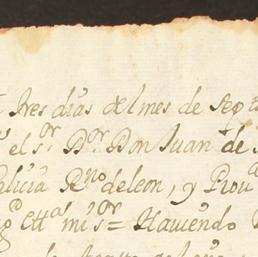 tres dias del mes de Sep
el s.or D.or Don Juan de S
alicia R.no de leon, y Prou.a
ett.a mi s.or = Haviendo